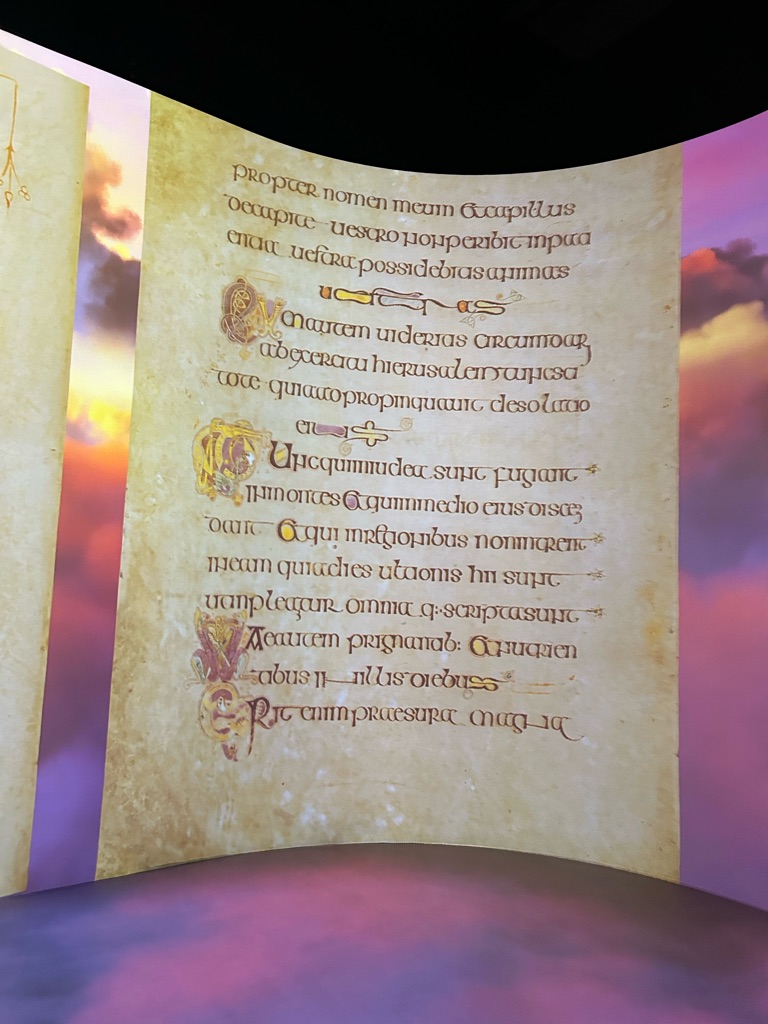 propter nomen meum & capillus
decapite uestro nonperibit inpaa
entia uestra possidebitas animas
Cum autem uideritis circumdar
ab exercitu hierusalem tunc sci
tote quia adpropinquauit desolatio
eius
Tunc qui in iudea sunt fugiant
in montes & qui in medio eius disce
dant & qui in regionibus non intrent
in eam quia dies ultionis hii sunt
ut impleatur omnia q: scripta sunt
Vae autem prignatib: & nutrien
tibus in illis diebus
Erit enim praesura magna